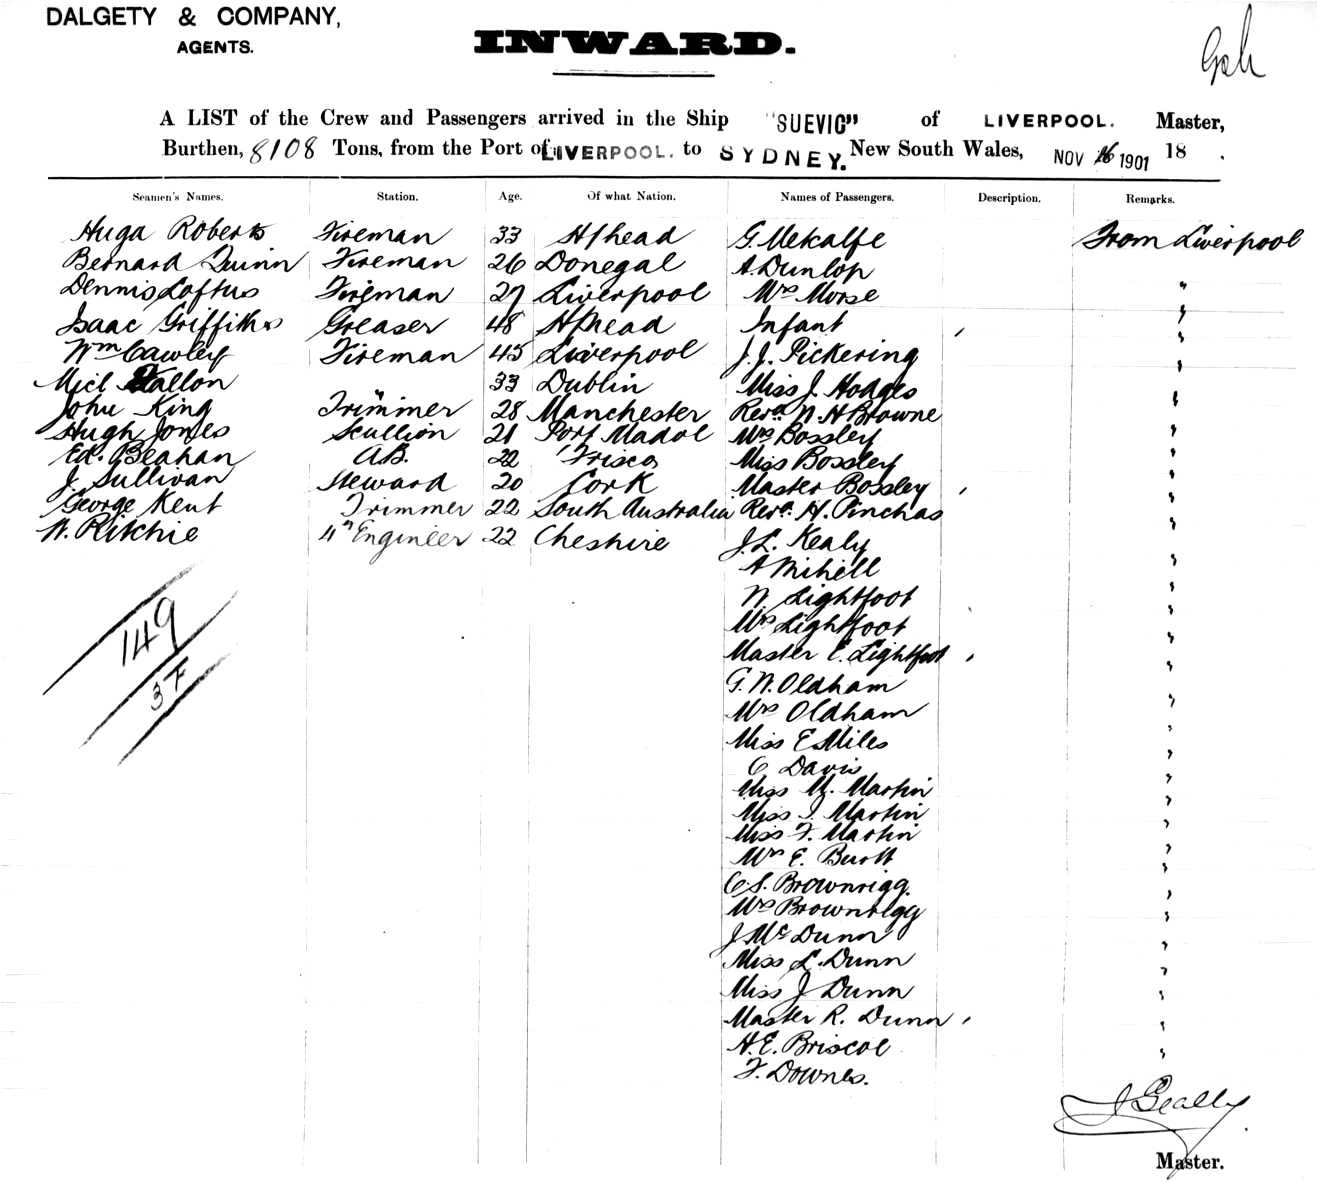 DALGETY & COMPANY,
AGENTS.
INWARD.
A LIST of the Crew and Passengers arrived in the Ship "SUEVIC" of LIVERPOOL. Master,
Burthen, 8108 Tons, from the Port of LIVERPOOL. to SYDNEY. New South Wales, NOV 16 1901 18 .
Seamen's Names. Station. Age. Of what Nation. Names of Passengers. Description. Remarks.
Huga Roberts Fireman 33 H/head G. Metcalfe From Liverpool
Bernard Quinn Fireman 26 Donegal A. Dunlop "
Dennis Loftus Fireman 27 Liverpool Mrs Morse "
Isaac Griffiths Greaser 48 H/head Infant "
Wm Cawley Fireman 45 Liverpool J. J. Pickering "
Micl Fallon " 33 Dublin Miss J. Hodges "
John King Trimmer 28 Manchester Revd. W. H Browne "
Hugh Jones Scullion 21 Port Madoc Mrs Bossley "
Ed. Beahan A.B. 22 'Frisco Miss Bossley "
J. Sullivan Steward 20 Cork Master Bossley "
George Kent Trimmer 22 South Australia Revd. H. Pinchas "
W. Ritchie 4th Engineer 22 Cheshire J. L. Kealy "
A Mihell "
W. Lightfoot "
Mrs Lightfoot "
Master E. Lightfoot "
G. W. Oldham "
Mrs Oldham "
Miss E Miles "
C Davis "
Miss M. Martin "
Miss I. Martin "
Miss F. Martin "
Mrs E. Burtt "
C. S. Brownrigg. "
Mrs Brownrigg "
J Mc Dunn "
Miss L. Dunn "
Miss J Dunn "
Master R. Dunn "
H. E. Briscoe "
F. Downes.
149
3 F
Master.